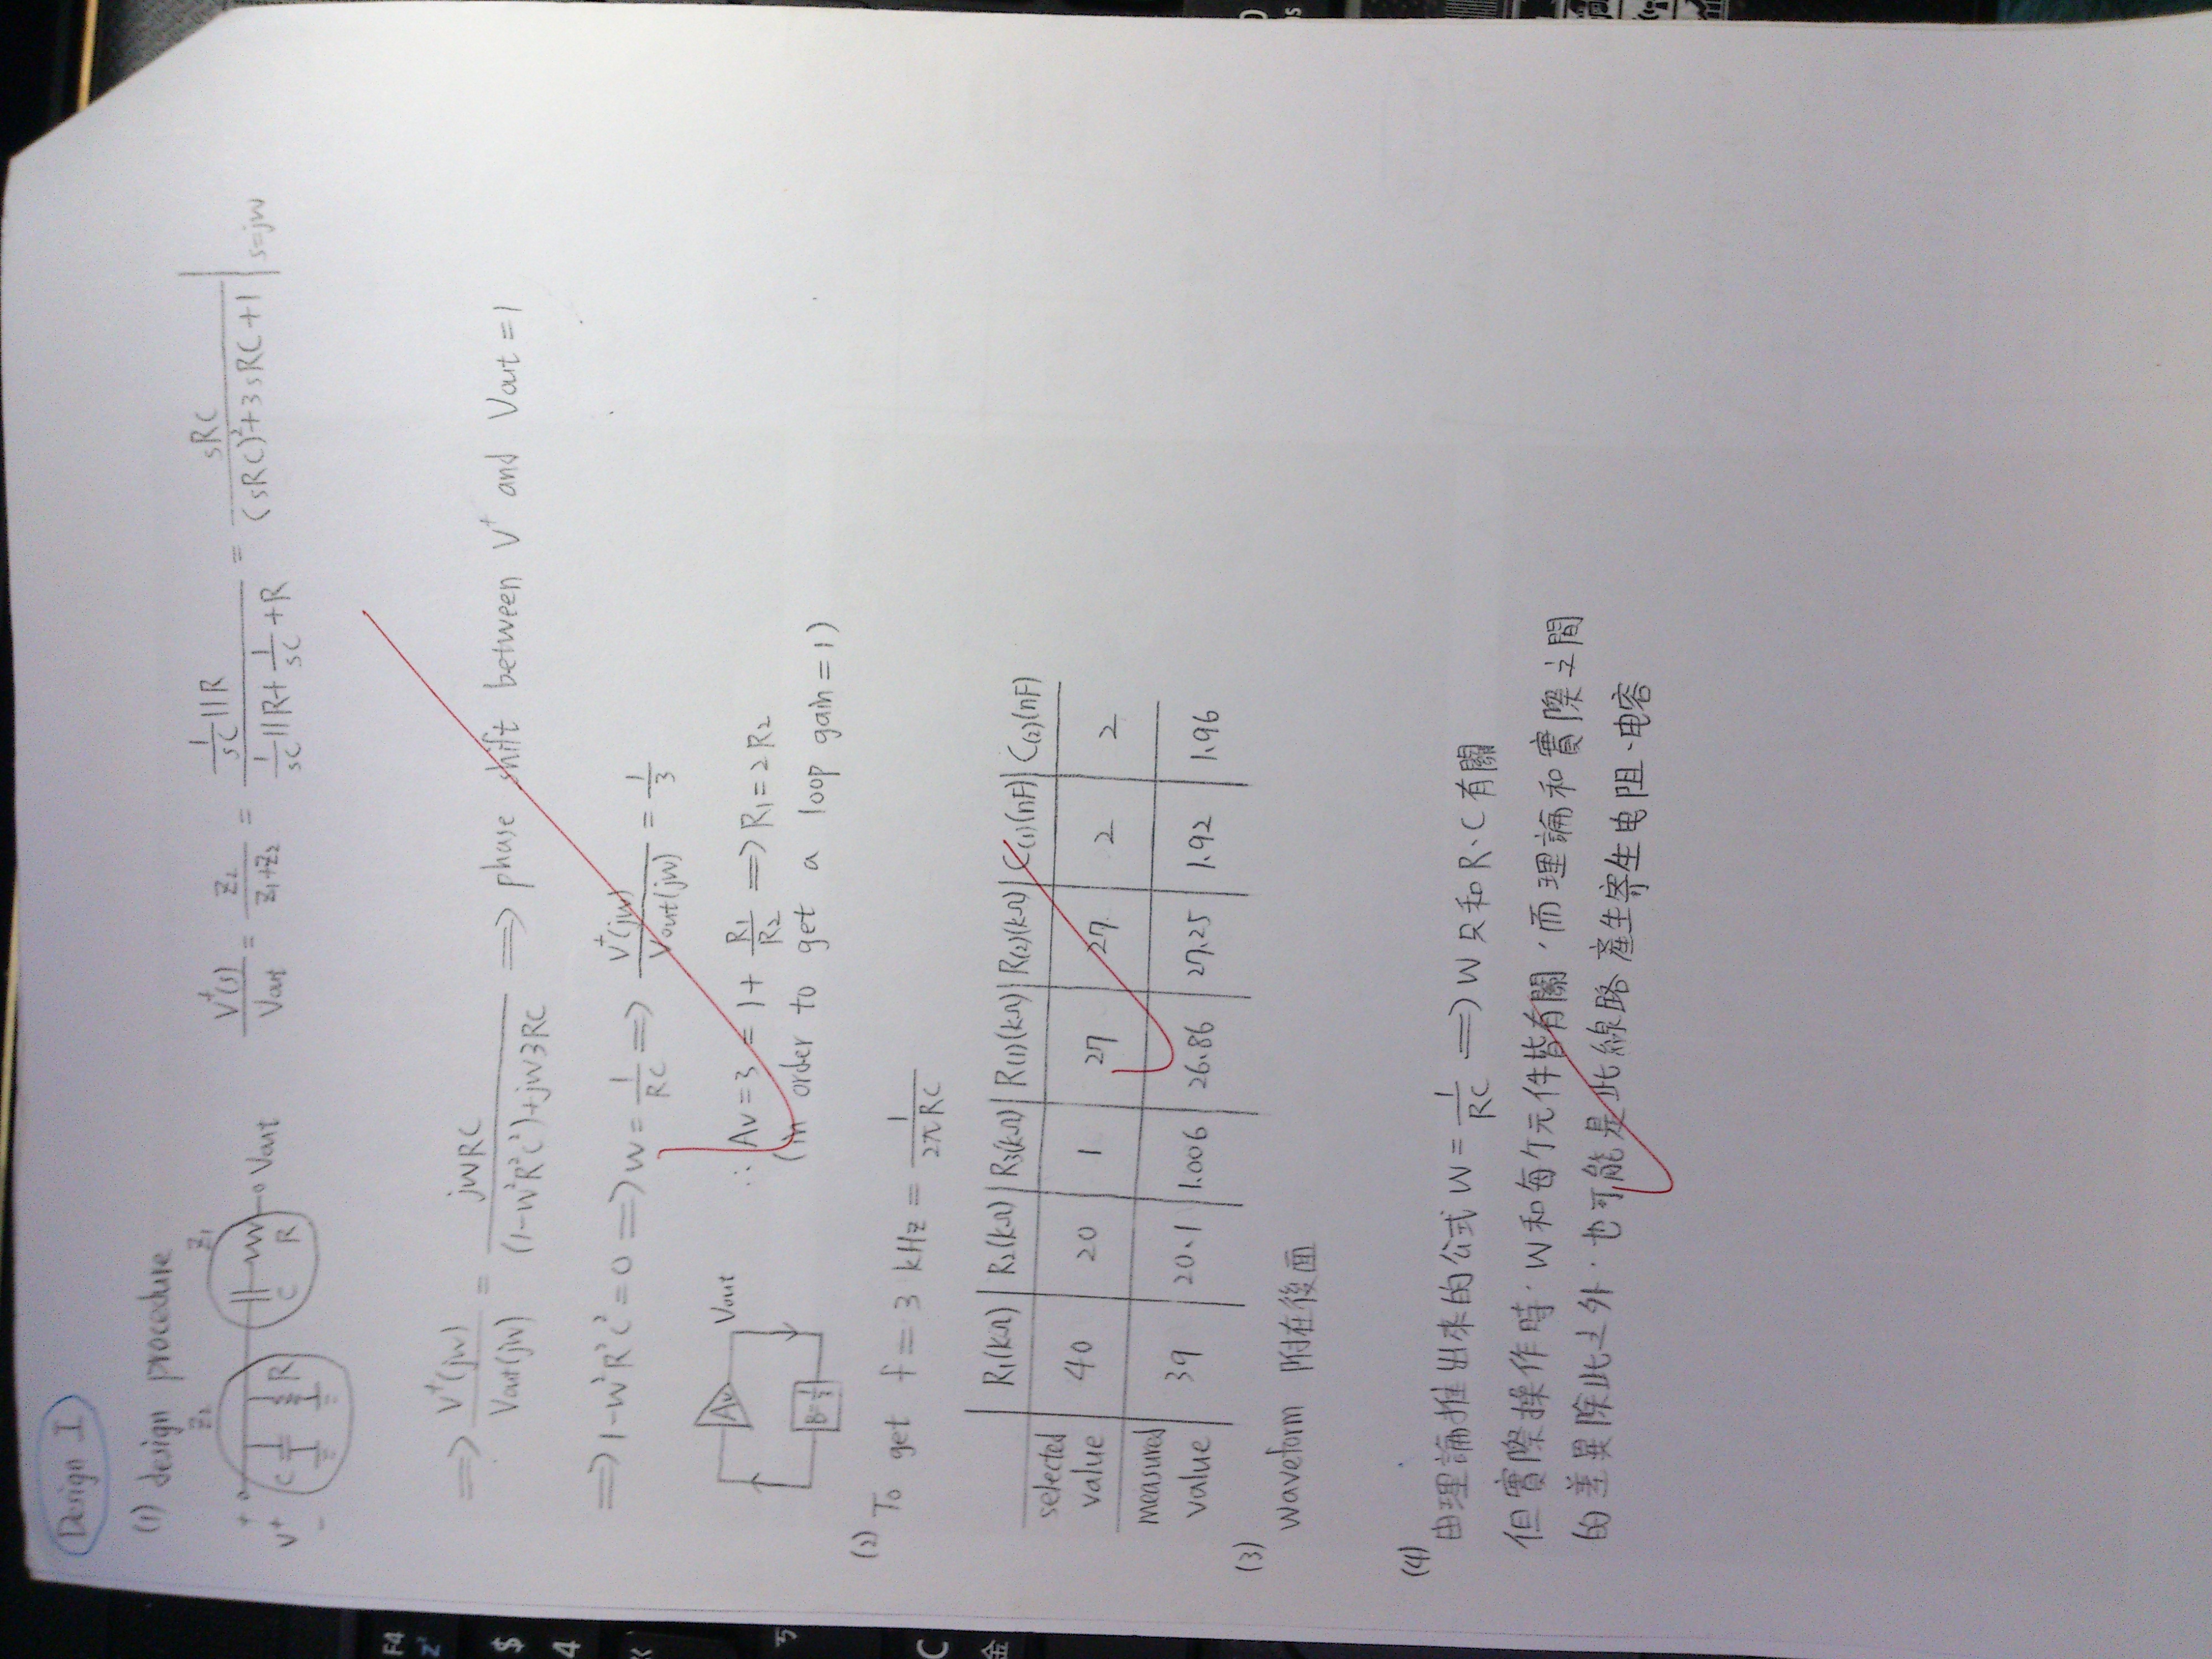 Design I
(1) design procedure
Z₂ Z₁
+ V⁺ - C R C R Vout
V⁺(s)/Vout = Z₂/(Z₁+Z₂) = (1/sC || R)/(1/sC || R + 1/sC + R) = sRC/((sRC)²+3sRC+1) | s=jw
⟹ V⁺(jw)/Vout(jw) = jwRC/((1-w²R²C²)+jw3RC) ⟹ phase shift between V⁺ and Vout = 1
⟹ 1-w²R²C² = 0 ⟹ w = 1/RC ⟹ V⁺(jw)/Vout(jw) = 1/3
Av Vout
B=1/3
∴ Av = 3 = 1 + R₁/R₂ ⟹ R₁ = 2R₂
(in order to get a loop gain = 1)
(2) To get f = 3 kHz = 1/2πRC
R₁(kΩ) R₂(kΩ) R₃(kΩ) R₍₁₎(kΩ) R₍₂₎(kΩ) C₍₁₎(nF) C₍₂₎(nF)
selected value 40 20 1 27 27 2 2
measured value 39 20.1 1.006 26.86 27.25 1.92 1.96
(3)
waveform 附在後面
(4)
由理論推出來的公式 w = 1/RC ⟹ w 只和 R、C 有關
但實際操作時, w和每个元件皆有關,而理論和實際之間
的差異除此之外,也可能是此線路產生寄生电阻、电容
F4
Z²
$
4
C
金